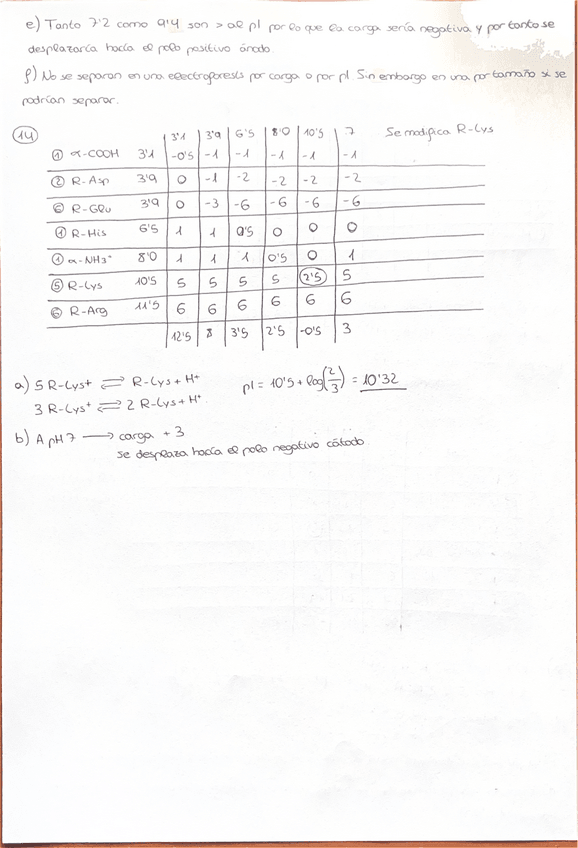 e) Tanto 7'2 como 9'4 son > al pI por lo que la carga sería negativa y por tanto se
desplazaría hacía el polo positivo ánodo.
f) No se separan en una electroforesis por carga o por pI. Sin embargo en una por tamaño si se
podrían separar.
14 3'1 3'9 6'5 8'0 10'5 7 Se modifica R-Lys
① α-COOH 3'1 -0'5 -1 -1 -1 -1 -1
② R-Asp 3'9 0 -1 -2 -2 -2 -2
⑥ R-Glu 3'9 0 -3 -6 -6 -6 -6
① R-His 6'5 1 1 0'5 0 0 0
① α-NH3⁺ 8'0 1 1 1 0'5 0 1
⑤ R-Lys 10'5 5 5 5 5 2'5 5
⑥ R-Arg 11'5 6 6 6 6 6 6
12'5 8 3'5 2'5 -0'5 3
a) 5 R-Lys+ ⇌ R-Lys + H+ pI = 10'5 + log(2/3) = 10'32
3 R-Lys+ ⇌ 2 R-Lys + H+
b) A pH 7 ⟶ carga + 3
se desplaza hacía el polo negativo cátodo.